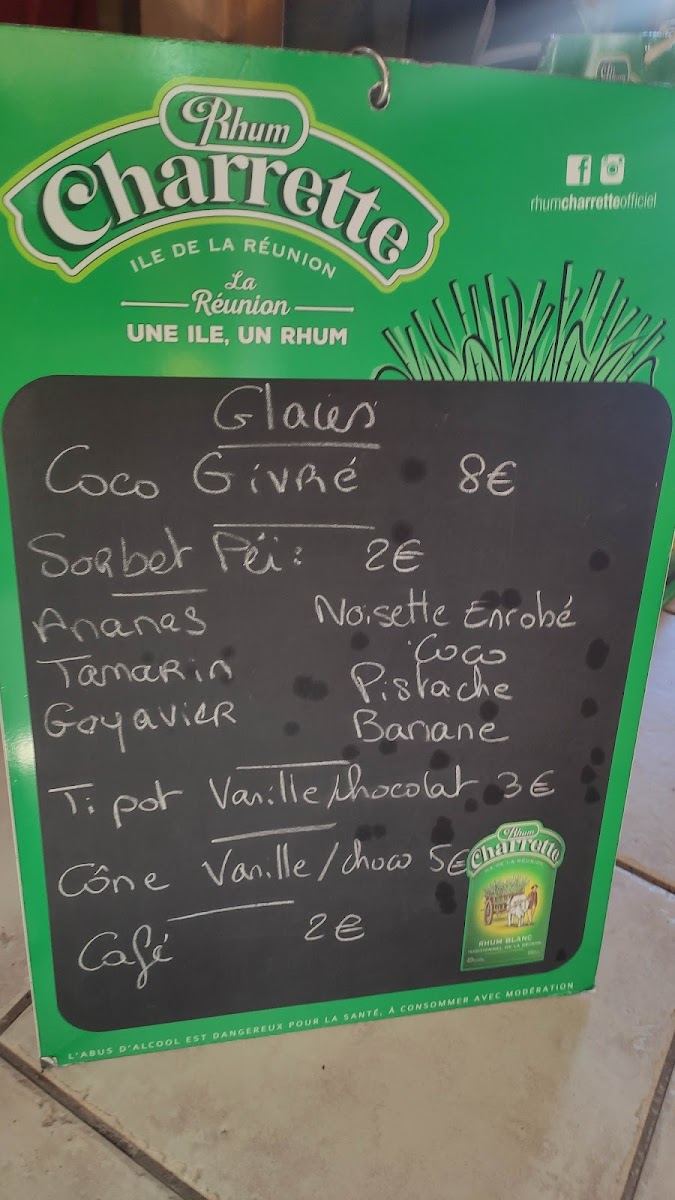 Rhum
Charrette
ILE DE LA RÉUNION
La
Réunion
UNE ILE, UN RHUM
rhumcharretteofficiel
Glaces
Coco Givré 8€
Sorbet Péi: 2€
Ananas Noisette Enrobé
Tamarin Coco
Goyavier Pistache
Banane
Ti pot Vanille/chocolat 3€
Cône Vanille/choco 5€
Café 2€
Rhum
Charrette
ILE DE LA RÉUNION
RHUM BLANC
TRADITIONNEL DE LA RÉUNION
L'ABUS D'ALCOOL EST DANGEREUX POUR LA SANTÉ, À CONSOMMER AVEC MODÉRATION